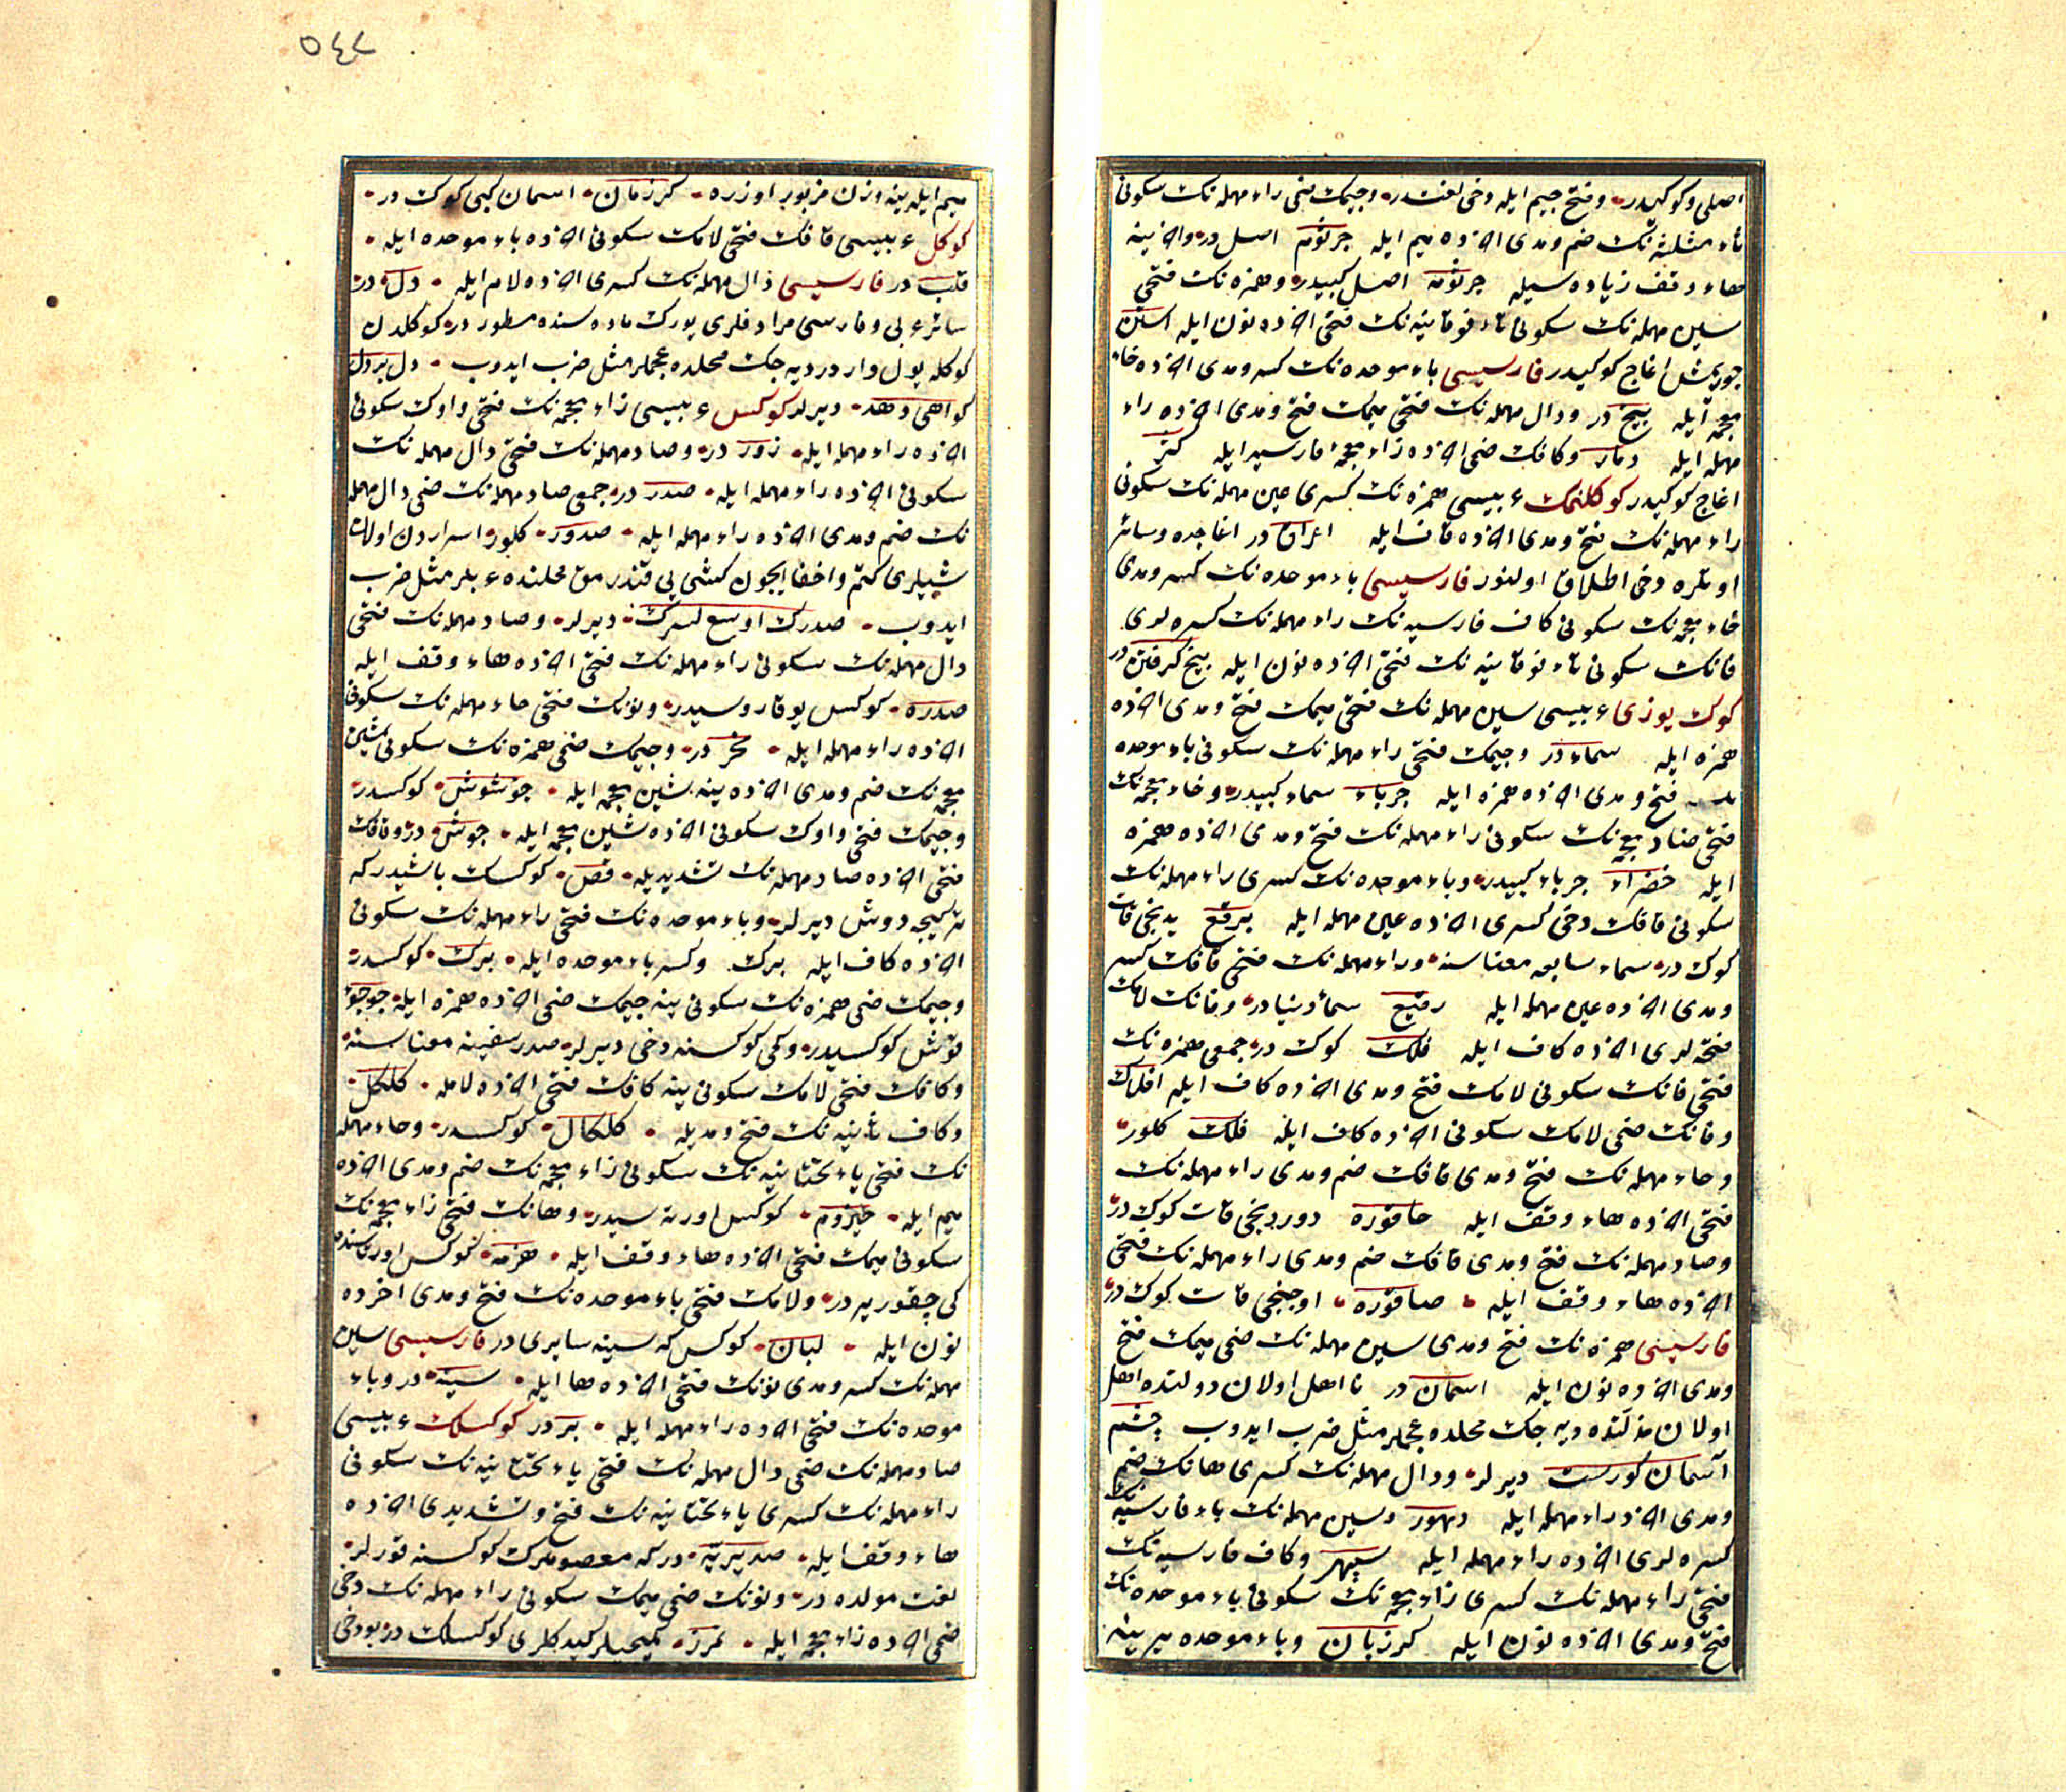 اصلی و کوکیدر و فتح جیم ایله دخی لغتدر و جیمک ضمی راء مهمله نک سکونی
ثاء مثلثه نک ضم و مدی آخرده میم ایله جرثوم اصل در و آخرینه
هاء وقف زیاده سیله جرثومه اصل کبیدر و همزه نک فتحی
سین مهمله نک سکونی تاء فوقانیه نک فتحی آخرده نون ایله استن
چوریمش اغاج کوکیدر فارسیسی باء موحده نک کسر و مدی آخرده خاء
معجمه ایله بیخ در و دال مهمله نک فتحی میمک فتح و مدی آخرده راء
مهمله ایله دمار و کافک ضمی آخرده زاء معجمه فارسیه ایله کز
اغاج کوکیدر کوکلنمک عربیسی همزه نک کسری عین مهمله نک سکونی
راء مهمله نک فتح و مدی آخرده قاف ایله اعراق در اغاجده و سائر
اوتلرده دخی اطلاق اولنور فارسیسی باء موحده نک کسر و مدی
خاء معجمه نک سکونی کاف فارسیه نک راء مهمله نک کسره لری
فانک سکونی تاء فوقانیه نک فتحی آخرده نون ایله بیخ کرفتن در
کوک یوزی عربیسی سین مهمله نک فتحی میمک فتح و مدی آخرده
همزه ایله سماء در و جیمک فتحی راء مهمله نک سکونی باء موحده
نک فتح و مدی آخرده همزه ایله جرباء سماء کبیدر و خاء معجمه نک
فتحی ضاد معجمه نک سکونی راء مهمله نک فتح و مدی آخرده همزه
ایله خضراء جرباء کبیدر و باء موحده نک کسری راء مهمله نک
سکونی قافک دخی کسری آخرده عین مهمله ایله برقع یدنجی قات
کوک در سماء سابعه معناسنه و راء مهمله نک فتحی قافک کسر
و مدی آخرده عین مهمله ایله رقیع سماء دنیادر و فانک لامک
فتحه لری آخرده کاف ایله فلک کوک در جمعی همزه نک
فتحی فانک سکونی لامک فتح و مدی آخرده کاف ایله افلاک
و فانک ضمی لامک سکونی آخرده کاف ایله فلک کلور
و حاء مهمله نک فتح و مدی قافک ضم و مدی راء مهمله نک
فتحی آخرده هاء وقف ایله حاقوره دوردنجی قات کوک در
و صاد مهمله نک فتح و مدی قافک ضم و مدی راء مهمله نک فتحی
آخرده هاء وقف ایله صاقوره اوچنجی قات کوک در
فارسیسی همزه نک فتح و مدی سین مهمله نک ضمی میمک فتح
و مدی آخرده نون ایله اسمان در نا اهل اولان دولتده اهل
اولان مذلتده دیه جک محلده عجملر مثل ضرب ایدوب چشم
آسمان کورست دیرلر و دال مهمله نک کسری هانک ضم
و مدی آخرده راء مهمله ایله دهور و سین مهمله نک باء فارسیه نک
کسره لری آخرده راء مهمله ایله سپهر و کاف فارسیه نک
فتحی راء مهمله نک کسری زاء معجمه نک سکونی باء موحده نک
فتح و مدی آخرده نون ایله کرزبان و باء موحده یرینه
میم ایله ینه وزن مزبور اوزره کرزمان اسمان کبی کوک در
کوکل عربیسی قافک فتحی لامک سکونی آخرده باء موحده ایله
قلب در فارسیسی دال مهمله نک کسری آخرده لام ایله دل در
سائر عربی و فارسی مرادفلری یورک ماده سنده مسطور در کوکلدن
کوکله یول وار در دیه جک محلده عجملر مثل ضرب ایدوب دل بر دل
کواهی دهد دیرلر کوکس عربیسی زاء معجمه نک فتحی واوک سکونی
آخرده راء مهمله ایله زور در و صاد مهمله نک فتحی دال مهمله نک
سکونی آخرده راء مهمله ایله صدر در جمعی صاد مهمله نک ضمی دال مهمله
نک ضم و مدی آخرده راء مهمله ایله صدور کلور اسراردن اولان
شیلری کتم و اخفا ایچون کشی یی قندرمق محلنده عربلر مثل ضرب
ایدوب صدرک اوسع لسرک دیرلر و صاد مهمله نک فتحی
دال مهمله نک سکونی راء مهمله نک فتحی آخرده هاء وقف ایله
صدره کوکس یوقاروسیدر و نونک فتحی حاء مهمله نک سکونی
آخرده راء مهمله ایله نحر در و جیمک ضمی همزه نک سکونی شین
معجمه نک ضم و مدی آخرده ینه شین معجمه ایله جؤشوش کوکسدر
و جیمک فتحی واوک سکونی آخرده شین معجمه ایله جوش در و قافک
فتحی آخرده صاد مهمله نک تشدیدیله قص کوکسک باشیدر که
ترکیجه دوش دیرلر و باء موحده نک فتحی راء مهمله نک سکونی
آخرده کاف ایله برک و کسر باء موحده ایله برک کوکسدر
و جیمک ضمی همزه نک سکونی ینه جیمک ضمی آخرده همزه ایله جؤجؤ
قوش کوکسیدر و کمی کوکسنه دخی دیرلر صدر سفینه معناسنه
و کافک فتحی لامک سکونی ینه کافک فتحی آخرده لامله کلکل
و کاف ثانیه نک فتح و مدیله کلکال کوکسدر و حاء مهمله
نک فتحی یاء تحتانیه نک سکونی زاء معجمه نک ضم و مدی آخرده
میم ایله حیزوم کوکس اورته سیدر و هانک فتحی زاء معجمه نک
سکونی میمک فتحی آخرده هاء وقف ایله هزمه کوکس اورتاسنده
کی چقور یر در و لامک فتحی باء موحده نک فتح و مدی اخرده
نون ایله لبان کوکس که سینه سایری در فارسیسی سین
مهمله نک کسر و مدی نونک فتحی آخرده ها ایله سینه در و باء
موحده نک فتحی آخرده راء مهمله ایله بر در کوکسلک عربیسی
صاد مهمله نک ضمی دال مهمله نک فتحی یاء تحتانیه نک سکونی
راء مهمله نک کسری یاء تحتانیه نک فتح و تشدیدی آخرده
هاء وقف ایله صدیریه در که معصوملرک کوکسنه قورلر
لغت مولده در و نونک ضمی میمک سکونی راء مهمله نک دخی
ضمی آخرده زاء معجمه ایله نمرز کیدکلری کوکسلک در بو دخی